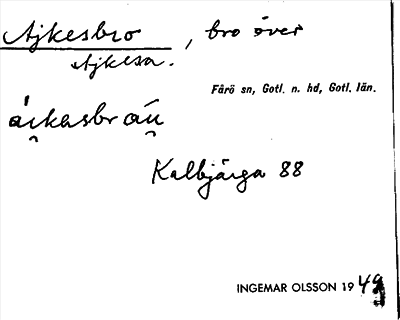 Ajkesbro, bro över
Ajkesa.
Fårö sn, Gotl. n. hd, Gotl. län.
ái̯kasbráu̯
Kalbjärga 88
INGEMAR OLSSON 1949